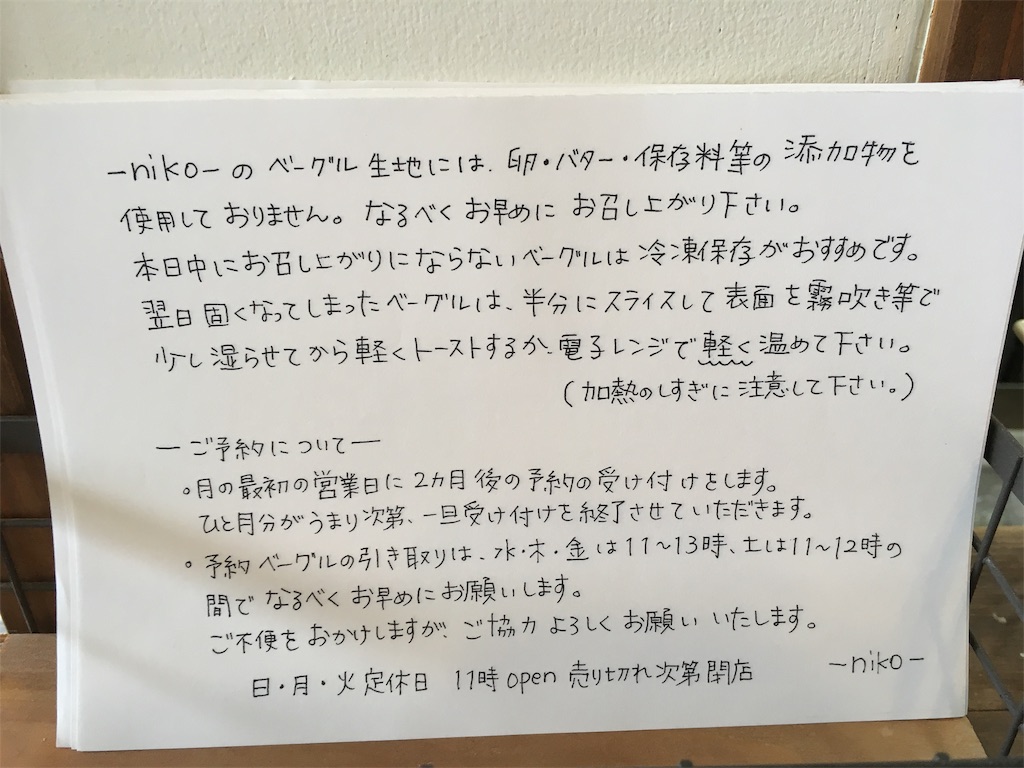 ーnikoーの ベーグル生地には、卵・バター・保存料等の添加物を
使用しておりません。なるべくお早めにお召し上がり下さい。
本日中にお召し上がりにならないベーグルは冷凍保存がおすすめです。
翌日固くなってしまったベーグルは、半分にスライスして表面を霧吹き等で
少し湿らせてから軽くトーストするか、電子レンジで軽く温めて下さい。
(加熱のしすぎに注意して下さい。)
ーご予約についてー
。月の最初の営業日に2カ月後の予約の受け付けをします。
ひと月分がうまり次第、一旦受け付けを終了させていただきます。
。予約ベーグルの引き取りは、水・木・金は11〜13時、土は11〜12時の
間でなるべくお早めにお願いします。
ご不便をおかけしますが、ご協力よろしくお願いいたします。
ーnikoー
日・月・火定休日 11時open 売り切れ次第閉店